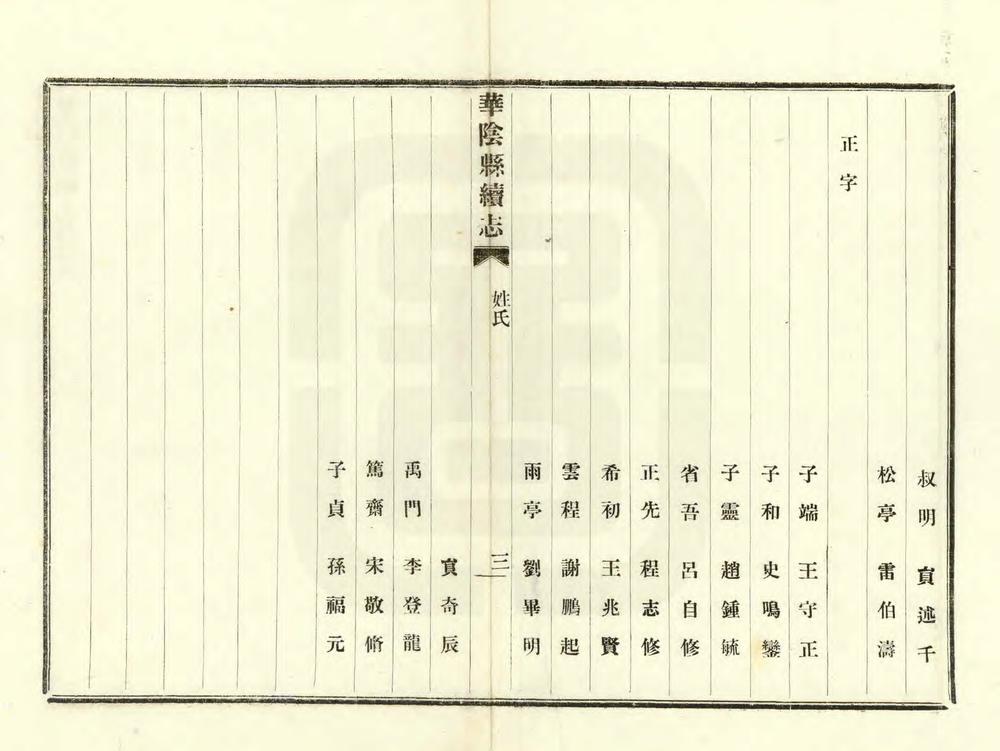 叔明 負述千
松亭 雷伯濤
正字
子端 王守正
子和 史鳴鑾
子靈 趙鍾毓
省吾 呂自修
正先 程志修
希初 王兆賢
雲程 謝鵬起
雨亭 劉畢明
華陰縣續志 姓氏 三
負奇辰
禹門 李登龍
篤齋 宋敬脩
子貞 孫福元